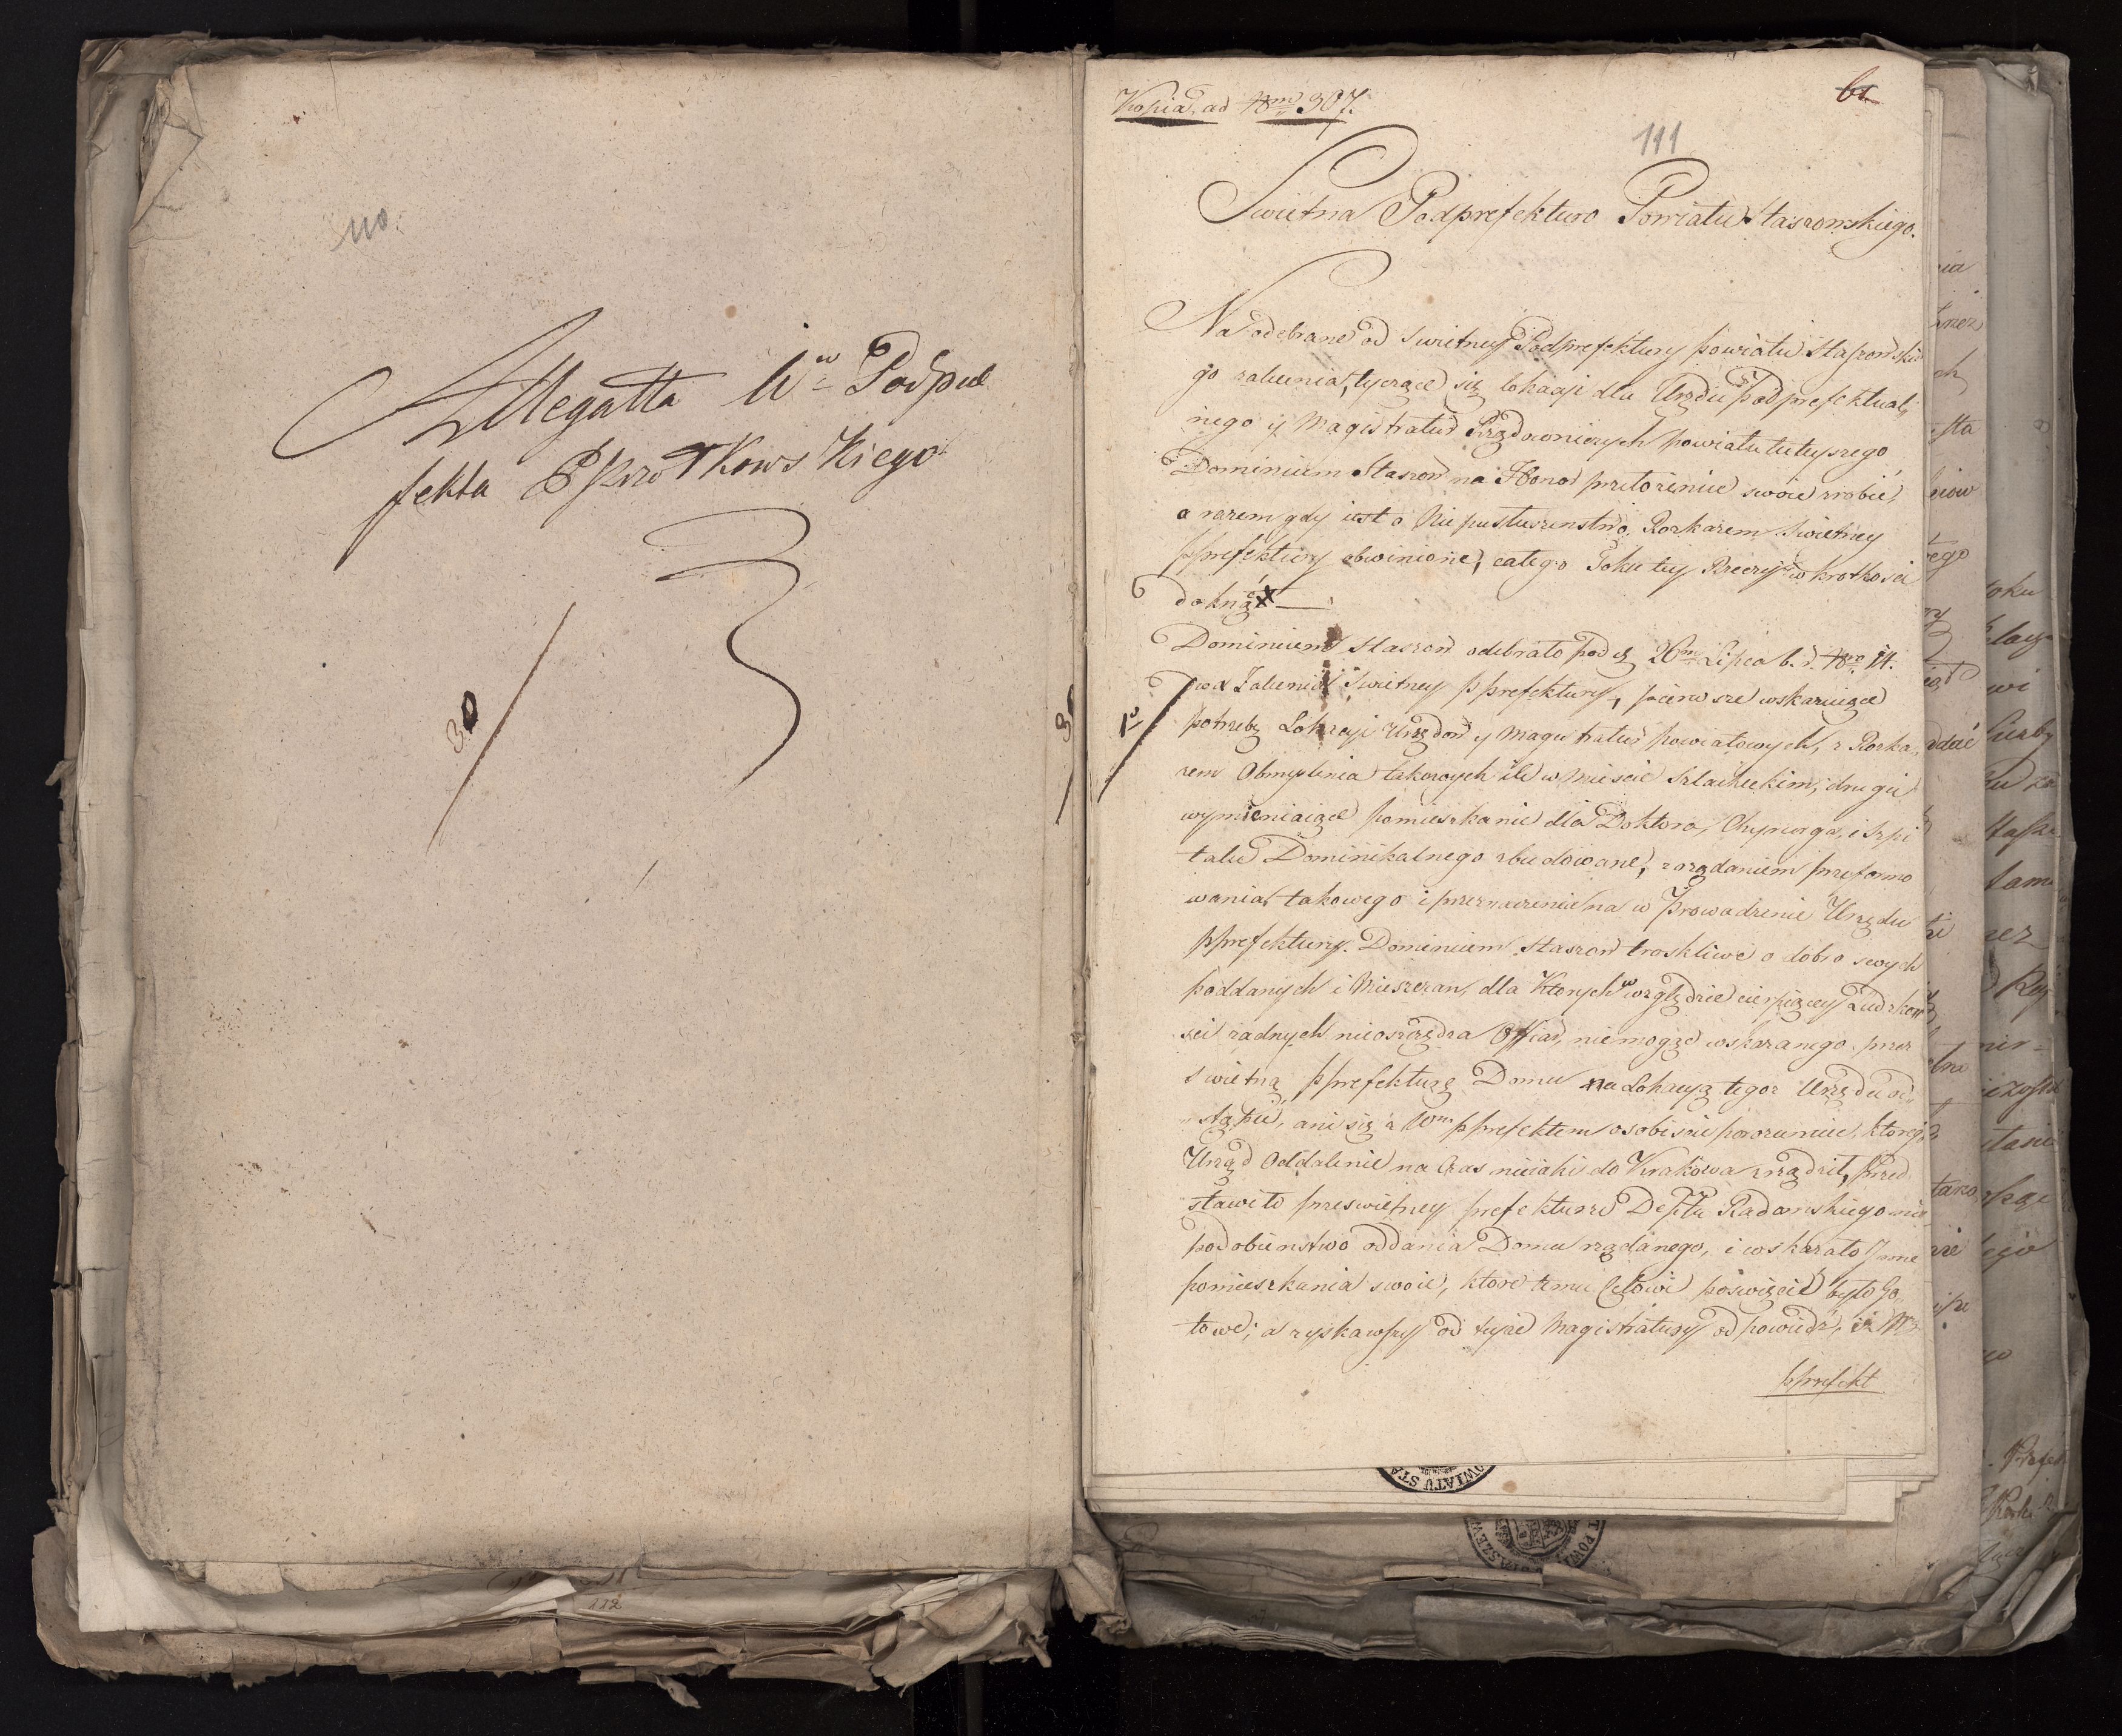 110.
Allegatta Wo Podpre
fekta Skrotkowskiego
30
Kopia, ad Nrm 307.
61
111
Swietna Podprefekturo Powiatu Staszowskiego.
Na odebrane od Swietney Podprefektury powiatu Staszowskie
go zalecenia, tyczące się lokacyi dla Urzędu Podprefektual,,
nego y Magistratur Rządowniczych powiatu tuteyszego
Dominium Staszow na Honor przełożenie swoie zrobić,
a razem gdy iest o Nieposłuszenstwo Rozkazem Swietney
pprefektury obwinione, całego Toku tey Rzeczy w krotkosci
doknąć
Dominium Staszow odebrało pod d. 26m Lipca b. r. Nro 14.
1o dwa Zalecenia Swietney pprefektury, pierwsze wskazuiące
potrzebę Lokacyi Urzędow y Magistratur powiatowych, z Rozka,
zem Obmyslenia takowych ile w Miescie Szlacheckim, drugie
wymieniaiące pomieszkanie dla Doktora, Chyrurga, i Szpi
talu Dominikalnego zbudowane, z żądaniem przeformo
wania takowego i przeznaczenia na w prowadzenie Urzędu
pprefektury. Dominium Staszow troskliwe o dobro swych
poddanych i Mieszczan, dla ktorych w względzie cierpiącey Ludzkos
sci żadnych nieoszczędza Offiar, niemogąc wskazanego przez
swietną pprefekturę Domu na Lokacyą tegoż Urzędu od,,
,,stąpić, ani się z Wm pprefektem osobiscie porozumiec, ktorego
Urząd Oddalenie na Czas nieiaki do Krakowa zrządził, przed
stawiło przeswietney prefekturze Deptu Radomskiego nie
podobienstwo oddania Domu żądanego, i wskazało Inne
pomieszkania swoie, ktore temu Celowi poswięcić było Go,
towe; a zyskawszy od teyże Magistratury odpowiedź, iż W
pprefekt
POWIATU STA